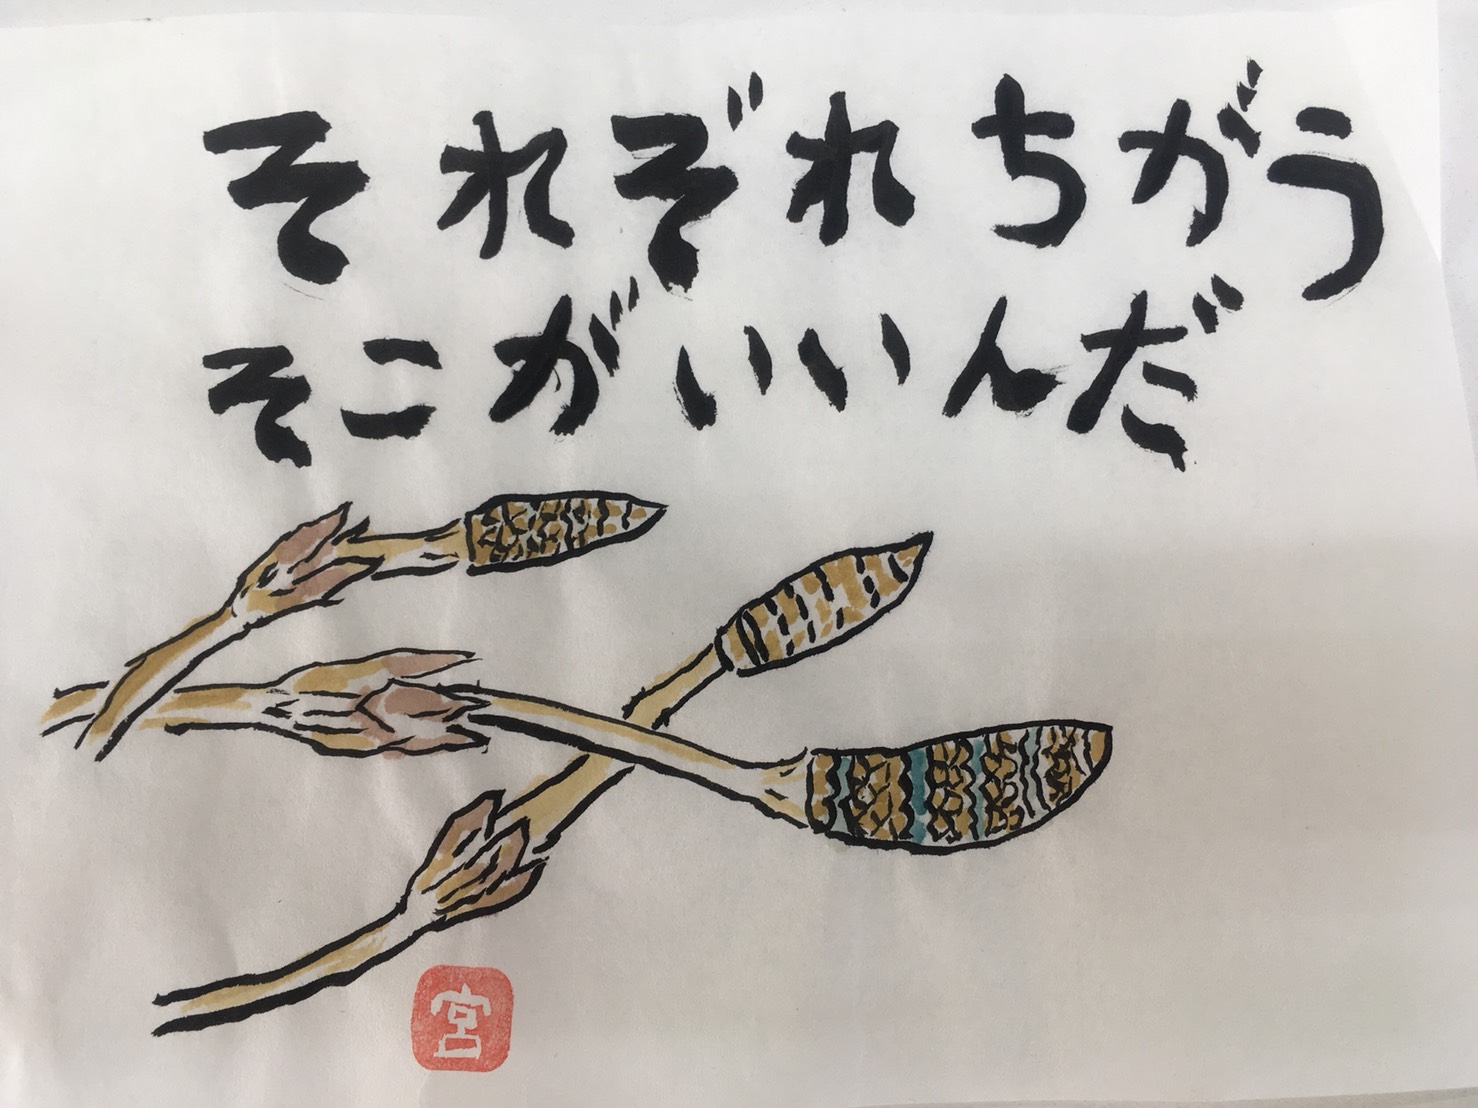 それぞれちがう
そこがいいんだ
宮